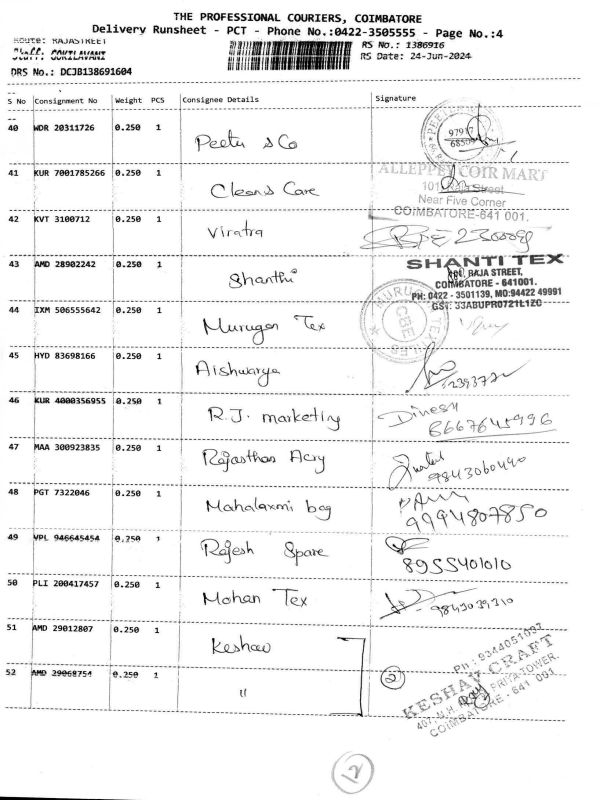 THE PROFESSIONAL COURIERS, COIMBATORE
Delivery Runsheet - PCT - Phone No.:0422-3505555 - Page No.:4
Route: RAJASTREET
RS No.: 1386916
Staff: GOKILAVANI
RS Date: 24-Jun-2024
DRS No.: DCJB138691604
S No Consignment No Weight PCS Consignee Details Signature
40 WDR 20311726 0.250 1 Peetu & Co
41 KUR 7001785266 0.250 1 Clean & Care
ALLEPPEY COIR MART
101, Raja Street
Near Five Corner
COIMBATORE-641 001.
42 KVT 3100712 0.250 1 Viratra
43 AMD 28902242 0.250 1 Shanthi
SHANTI TEX
RAJA STREET,
COIMBATORE - 641001.
PH: 0422 - 3501139, MO:94422 49991
GST: 33ABUPR0721L1ZC
44 IXM 506555642 0.250 1 Murugan Tex
MURUGAN TEXTILES
CBE
45 HYD 83698166 0.250 1 Aishwarya
46 KUR 4000356955 0.250 1 R.J. marketing Dinesh
6667645996
47 MAA 300923835 0.250 1 Rajasthan Acry
9843060440
48 PGT 7322046 0.250 1 Mahalaxmi bag
9994807850
49 VPL 946645454 0.250 1 Rajesh Spare
8955401010
50 PLI 200417457 0.250 1 Mohan Tex
9843039310
51 AMD 29012807 0.250 1 Keshav
52 AMD 29068754 0.250 1 "
2
Ph : 9344051093
KESHAV CRAFT
PRIYA TOWER.
COIMBATORE - 641 001
12